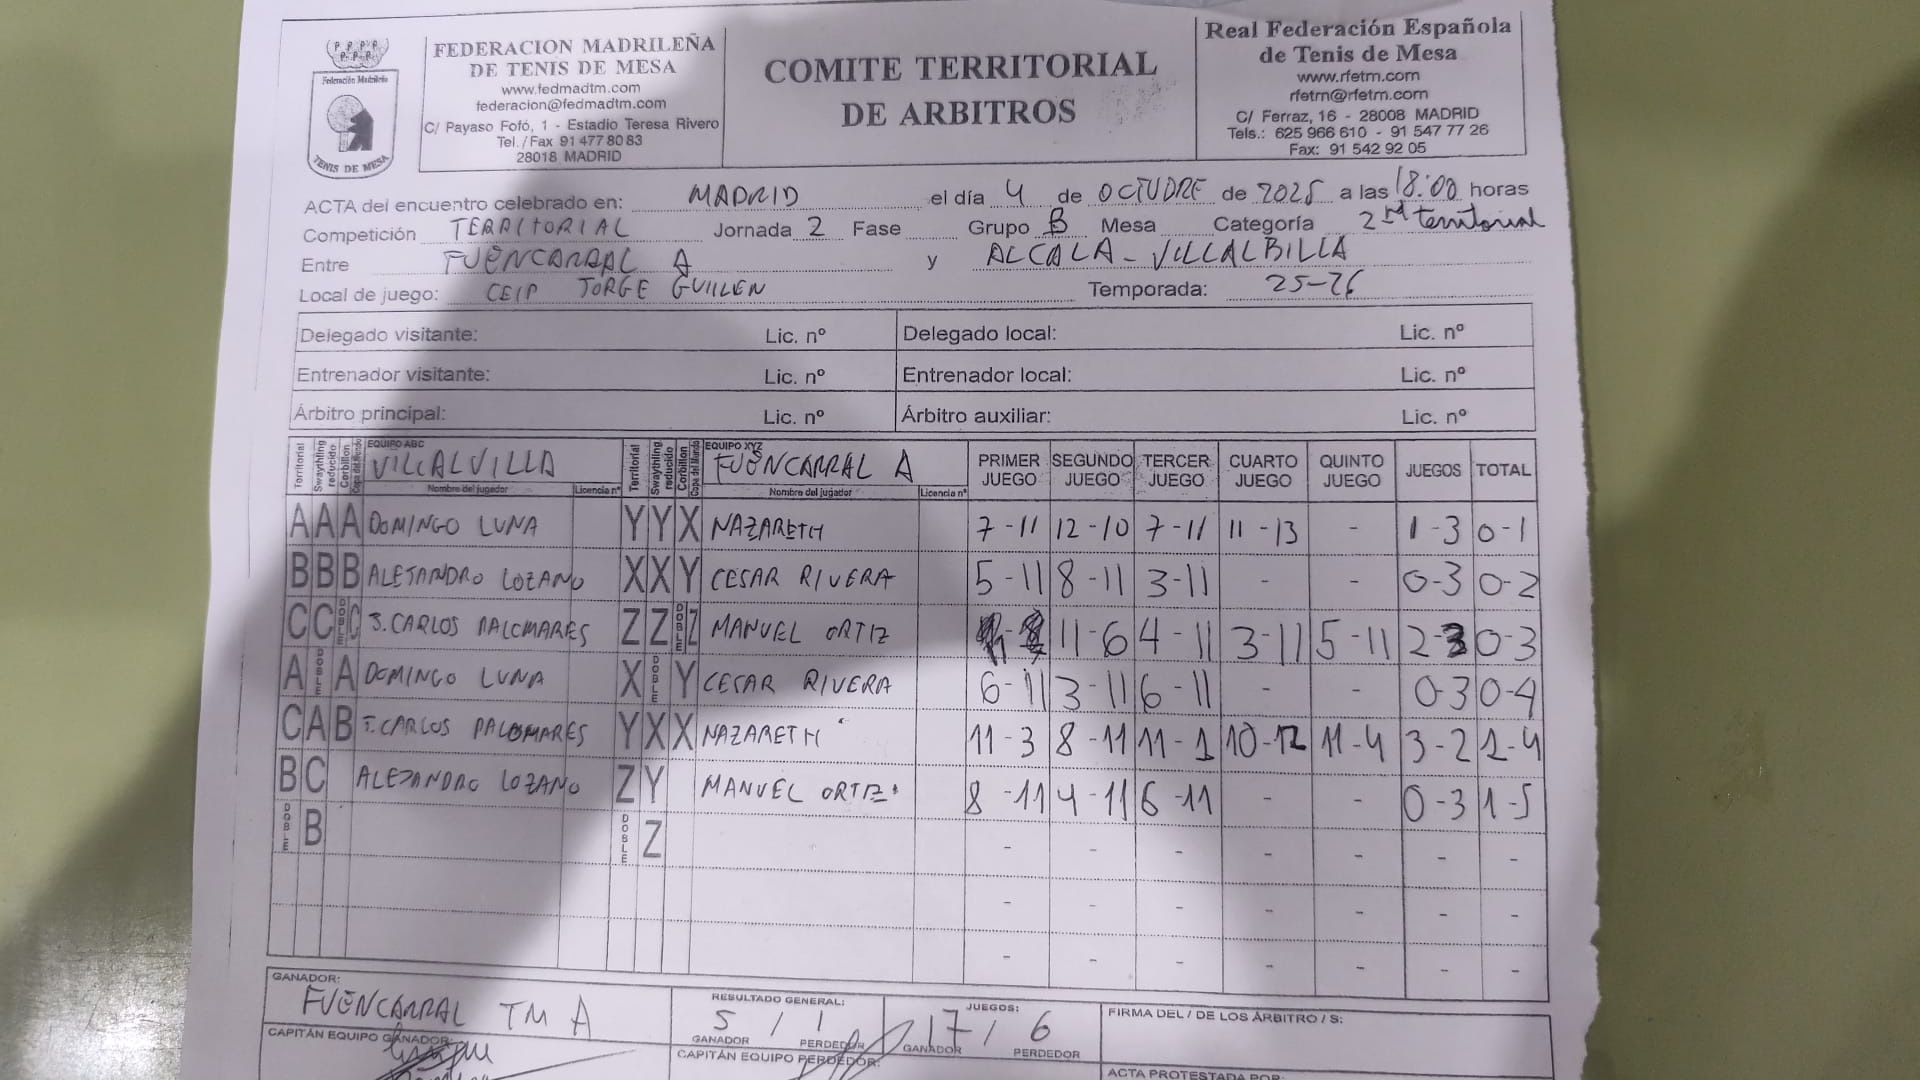 FEDERACION MADRILEÑA
DE TENIS DE MESA
www.fedmadtm.com
federacion@fedmadtm.com
C/ Payaso Fofó, 1 - Estadio Teresa Rivero
Tel./Fax 91 477 80 83
28018 MADRID
Federación Madrileña
TENIS DE MESA
COMITE TERRITORIAL
DE ARBITROS
Real Federación Española
de Tenis de Mesa
www.rfetm.com
rfetm@rfetm.com
C/ Ferraz, 16 - 28008 MADRID
Tels.: 625 966 610 - 91 547 77 26
Fax: 91 542 92 05
ACTA del encuentro celebrado en: MADRID el día 4 de OCTUBRE de 2025 a las 18:00 horas
Competición TERRITORIAL Jornada 2 Fase Grupo B Mesa Categoría 2ª territorial
Entre FUENCARRAL A y ALCALA - VILLALBILLA
Local de juego: CEIP JORGE GUILLEN Temporada: 25-26
Delegado visitante: Lic. nº Delegado local: Lic. nº
Entrenador visitante: Lic. nº Entrenador local: Lic. nº
Árbitro principal: Lic. nº Árbitro auxiliar: Lic. nº
Territorial Swaythling reducido Corbillon Copa del Mundo EQUIPO ABC VILLALVILLA Nombre del jugador Licencia nº Territorial Swaythling reducido Corbillon Copa del Mundo EQUIPO XYZ FUENCARRAL A Nombre del jugador Licencia nº PRIMER JUEGO SEGUNDO JUEGO TERCER JUEGO CUARTO JUEGO QUINTO JUEGO JUEGOS TOTAL
A A A DOMINGO LUNA Y Y X NAZARETH 7-11 12-10 7-11 11-13 - 1-3 0-1
B B B ALEJANDRO LOZANO X X Y CESAR RIVERA 5-11 8-11 3-11 - - 0-3 0-2
C C DOBLE C J. CARLOS PALOMARES Z Z DOBLE Z MANUEL ORTIZ 11-6 4-11 3-11 5-11 2-3 0-3
A DOBLE A DOMINGO LUNA X DOBLE Y CESAR RIVERA 6-11 3-11 6-11 - - 0-3 0-4
C A B J. CARLOS PALOMARES Y X X NAZARETH 11-3 8-11 11-1 10-12 11-4 3-2 1-4
B C ALEJANDRO LOZANO Z Y MANUEL ORTIZ 8-11 4-11 6-11 - - 0-3 1-5
DOBLE B DOBLE Z - - - - - - -
- - - - - - -
- - - - - - -
GANADOR: FUENCARRAL TM A
RESULTADO GENERAL: 5 / 1
GANADOR PERDEDOR
JUEGOS: 17 / 6
GANADOR PERDEDOR
FIRMA DEL / DE LOS ÁRBITRO / S:
CAPITÁN EQUIPO GANADOR:
CAPITÁN EQUIPO PERDEDOR:
ACTA PROTESTADA POR: